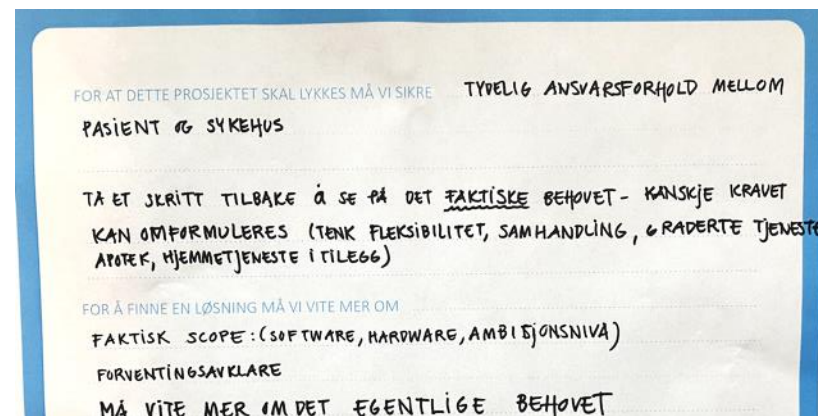 FOR AT DETTE PROSJEKTET SKAL LYKKES MÅ VI SIKRE TYDELIG ANSVARSFORHOLD MELLOM
PASIENT OG SYKEHUS
TA ET SKRITT TILBAKE Å SE PÅ DET FAKTISKE BEHOVET - KANSKJE KRAVET
KAN OMFORMULERES (TENK FLEKSIBILITET, SAMHANDLING, GRADERTE TJENESTE
APOTEK, HJEMMETJENESTE I TILEGG)
FOR Å FINNE EN LØSNING MÅ VI VITE MER OM
FAKTISK SCOPE: (SOFTWARE, HARDWARE, AMBISJONSNIVÅ)
FORVENTINGSAVKLARE
MÅ VITE MER OM DET EGENTLIGE BEHOVET